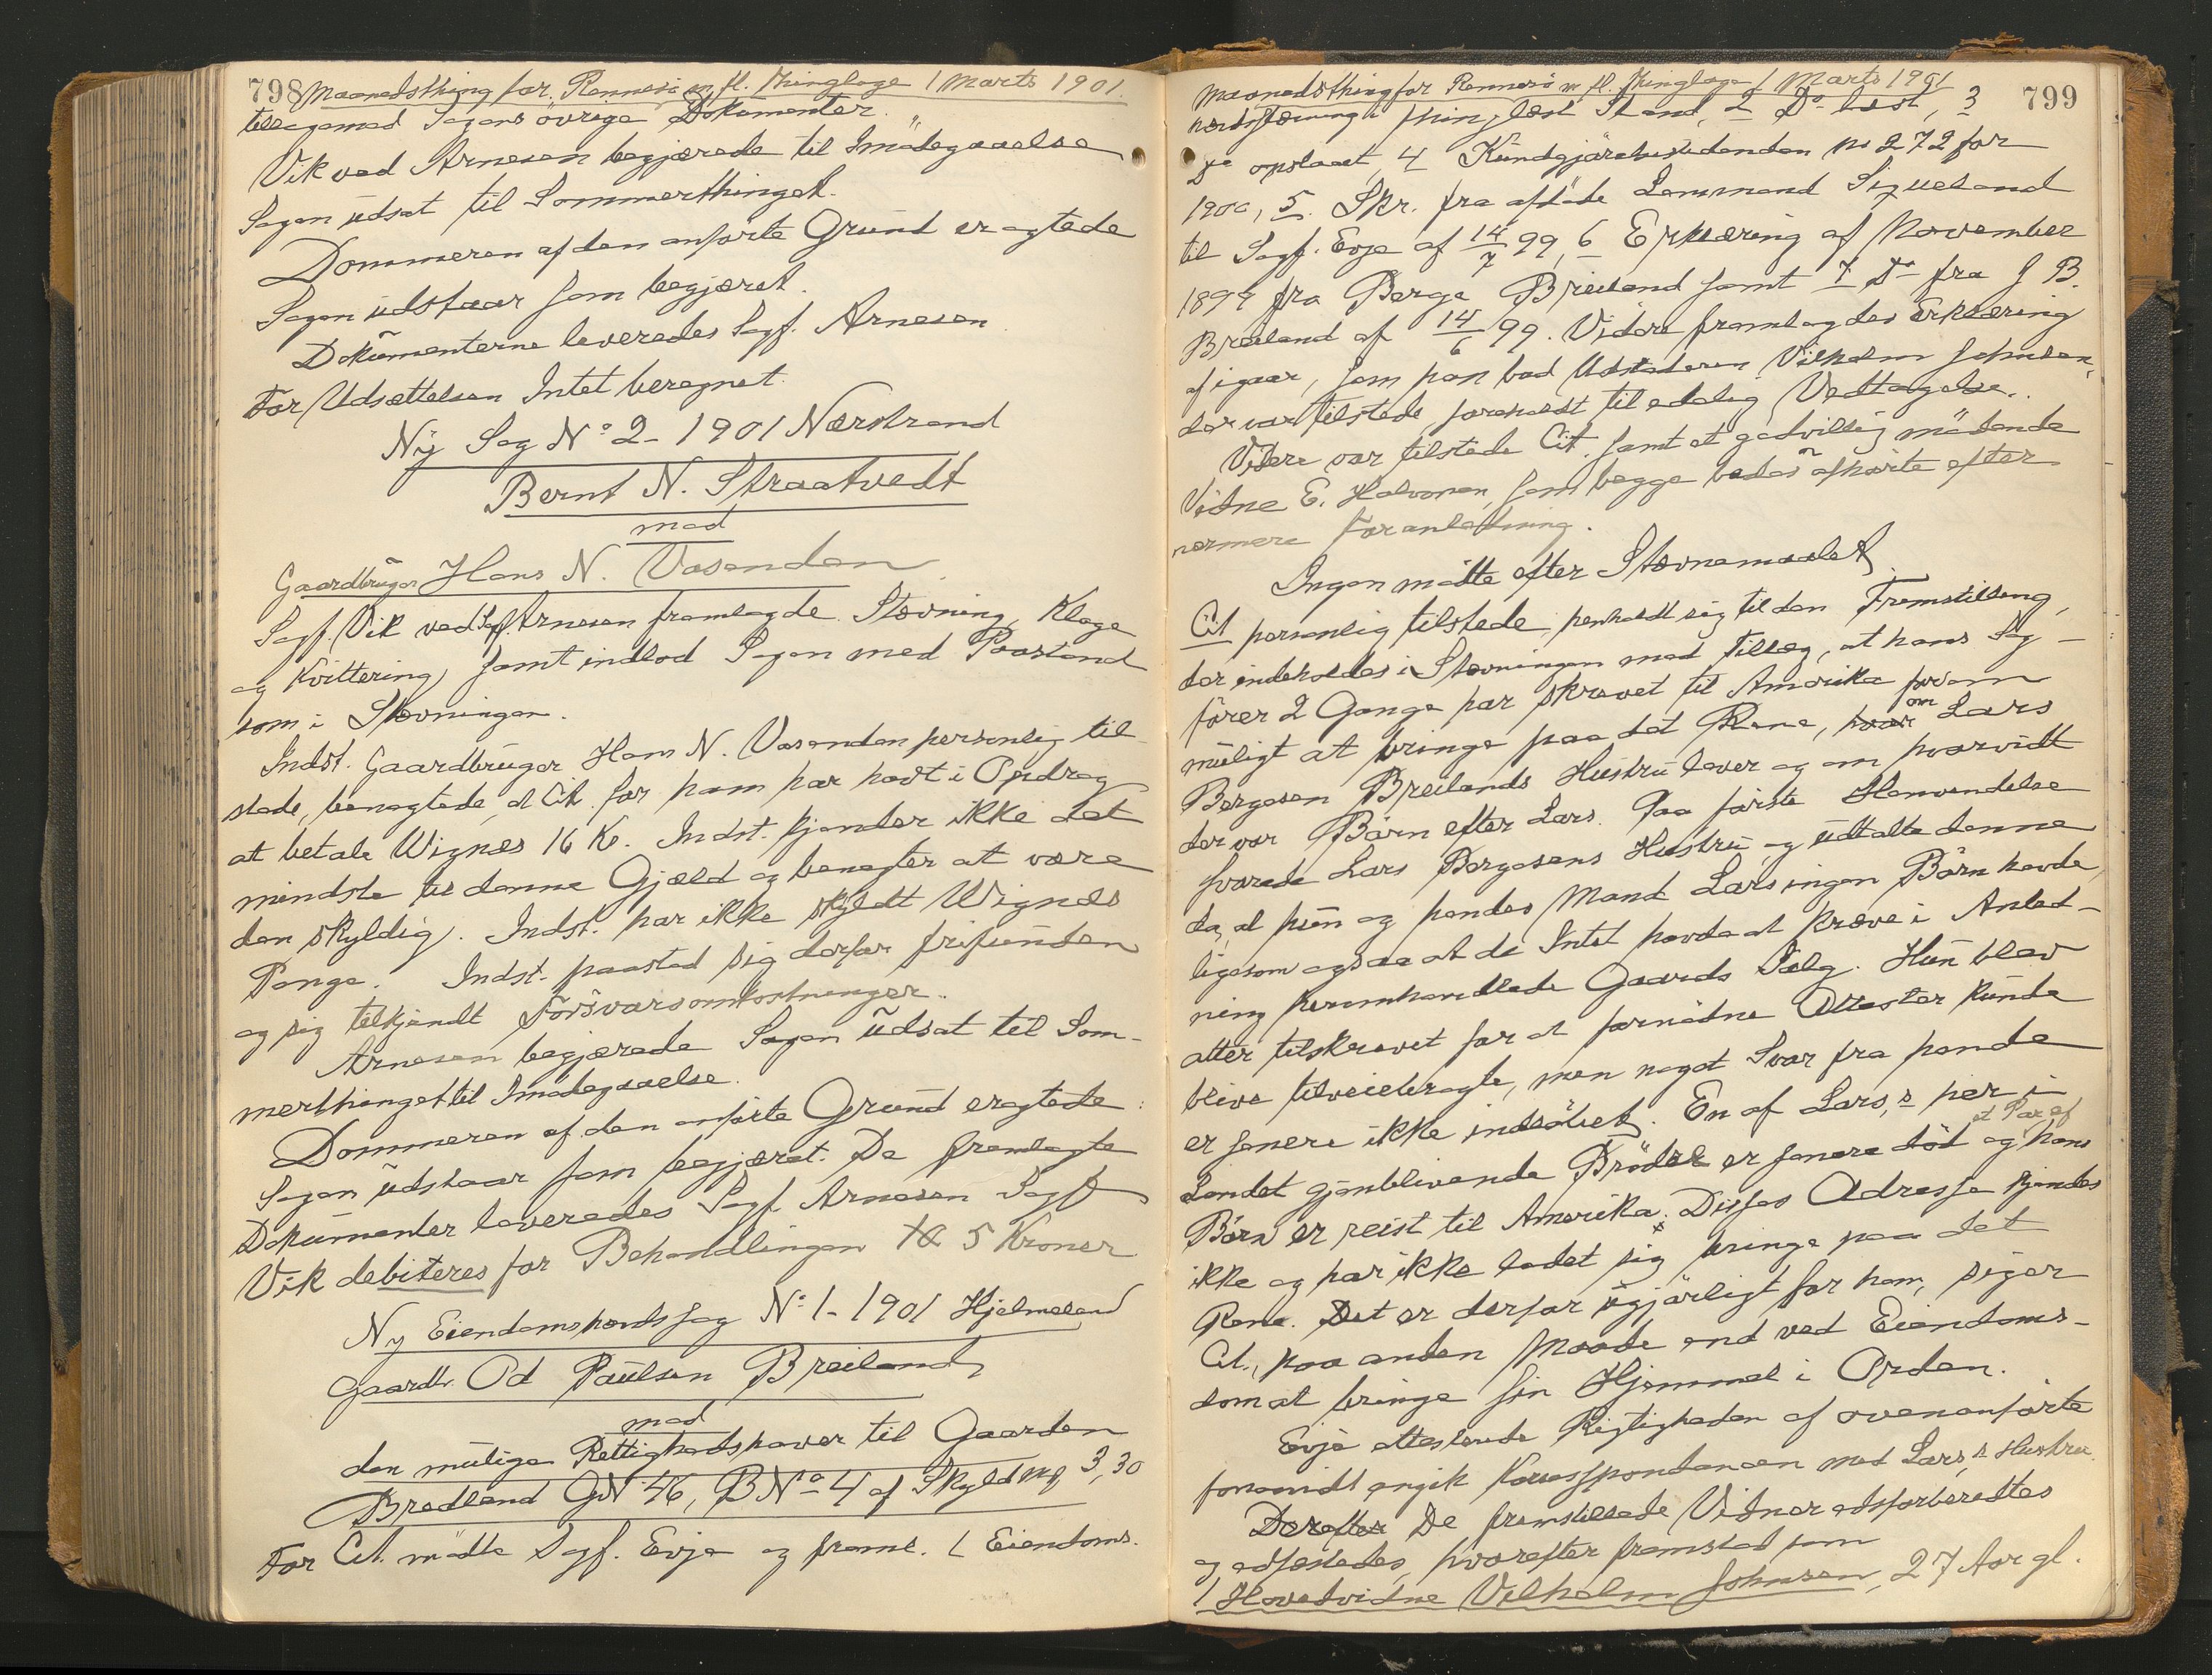 798 Maanedsthing for Rennesö m fl. Thinglage 1 Marts 1901.
tilligemed Sagens övrige Dokumenter.
Vik ved Arnesen begjærede til Imödegaaelse
Sagen udsat til Sommerthinget.
Dommeren af den anförte Grund eragtede
Sagen udstaar som begjæret.
Dokumenterne leveredes Sagf. Arnesen
For Udsættelsen Intet beregnet.
Ny Sag No 2 - 1901 Nærstrand
Bernt N. Straatvedt
mod
Gaardbruger Hans N. Vasenden
Sagf. Vik ved Sagf. Arnesen fremlagde Stevning, Klage
og Kvittering samt indlod Sagen med Paastand
som i Stevningen.
Indst. Gaardbruger Hans N. Vasenden personlig til-
stede, benegtede, at Cit. for ham har havt i Opdrag
at betale Wignæs 16 Kr. Indst. kjender ikke det
mindste til denne Gjæld og benegter at være
den skyldig. Indst. har ikke skyldt Wignæs
Penge. Indst. paastod sig derfor frifunden
og sig tilkjendt Forsvarsomkostninger.
Arnesen begjærede Sagen udsat til Som-
merthinget til Imödegaaelse.
Dommeren af den anförte Grund eragtede:
Sagen udstaar som begjæret. De fremlagte
Dokumenter leveredes Sagf. Arnesen Sagf
Vik debiteres for Behandlingen 5 Kroner
Ny Eiendomshævdssag No 1 - 1901 Hjelmeland
Gaardbr. Od Paulsen Breiland
mod
den mulige Rettighedshaver til Gaarden
Bredland GN 46, BNo 4 af Skyld mk 3,30
For Cit. mödte Sagf. Evje og freml. 1 Eiendoms-
Maanedsthing for Rennesö m fl. Thinglage 1 Marts 1901
799
hævdsstævning i thinglæst Stand, 2 Do læst, 3
Do opslaaet, 4 Kundgjörelsestidenden No 272 for
1900, 5. Skr. fra afdöde Lensmand Sigueland
til Sagf. Evje af 14/7 99, 6 Erklæring af November
1899 fra Berge Breiland samt 7 Do fra J B.
Breiland af 14/6 99. Videre fremlagdes Erklæring
af igaar, som han bad Udstederen Vilhelm Johnsen,
der var tilstede, foreholdt til edelig Vedtagelse.
Videre var tilstede Cit. samt et godvillig mödende
Vidne E. Halvorsen, som begge bades afhörte efter
nærmere Foranledning.
Ingen mödte efter Stevnemaalet
Cit personlig tilstede, henholdt sig til den Fremstilling,
der indeholdes i Stevningen med Tillæg, at hans Sag-
förer 2 Gange har skrevet til Amerika for om
muligt at bringe paa det Rene, hvor om Lars
Bergesen Breilands Hustru lever og om hvorvidt
der var Börn efter Lars. Paa förste Henvendelse
svarede Lars Bergesens Hustru og udtalte denne
da, at hun og hendes Mand Lars ingen Börn havde,
ligesom ogsaa at de Intet havde at kræve i Anled-
ning heromhandlede Gaards Salg. Hun blev
atter tilskrevet for at fornödne Attester kunde
blive tilveiebragte, men noget Svar fra hende
er senere ikke indlöbet. En af Lars,s her i
Landet gjenblivende Brödre er senere död og et Par af hans
Börn er reist til Amerika. Disses Adresse kjendes
ikke og har ikke ladet sig bringe paa det
Rene. Det er derfor ugjörligt for ham, siger
Cit., paa anden Maade end ved Eiendoms-
dom at bringe sin Hjemmel i Orden.
Evje attesterede Rigtigheden af ovenanförte
forsaavidt angik Korrespondancen med Lars,s Hustru.
Derefter De fremstillede Vidner edsforberedtes
og edfæstedes, hvorefter fremstod som
1 Hovedvidne Vilhelm Johnsen, 27 Aar gl.